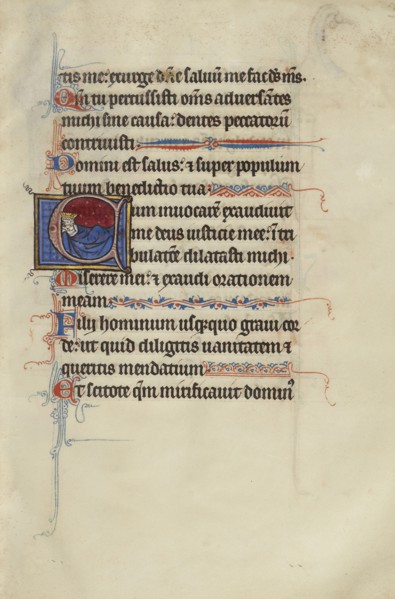 tis me: exurge dñe saluũ me fac dẽs m̃s.
Qm̃ tu percussisti om̃s aduersãtes
michi sine causa: dentes peccatorũ
contriuisti.
Domini est salus: ⁊ super populum
tuum benedictio tua.
Cum inuocarẽ exaudiuit
me deus iusticie mee: ĩ tri
bulatõe dilatasti michi.
Miserere mei: ⁊ exaudi orationem
meam.
Filij hominum usq̃quo graui cor
de: ut quid diligitis uanitatem ⁊
queritis mendatium
Et scitote qm̃ mirificauit dominꝰ